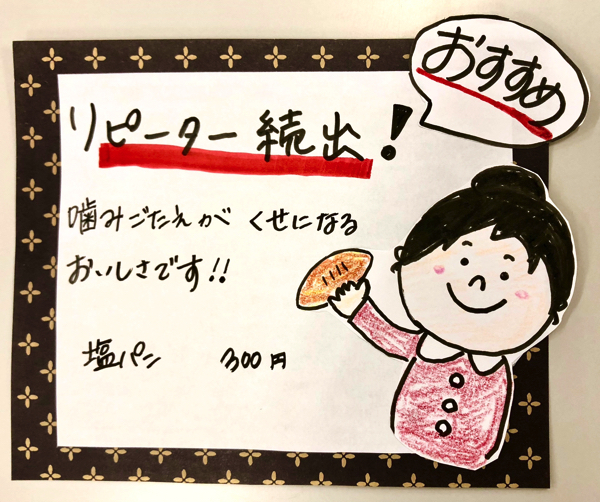 おすすめ
リピーター続出!
噛みごたえが くせになる
おいしさです!!
塩パン 300円